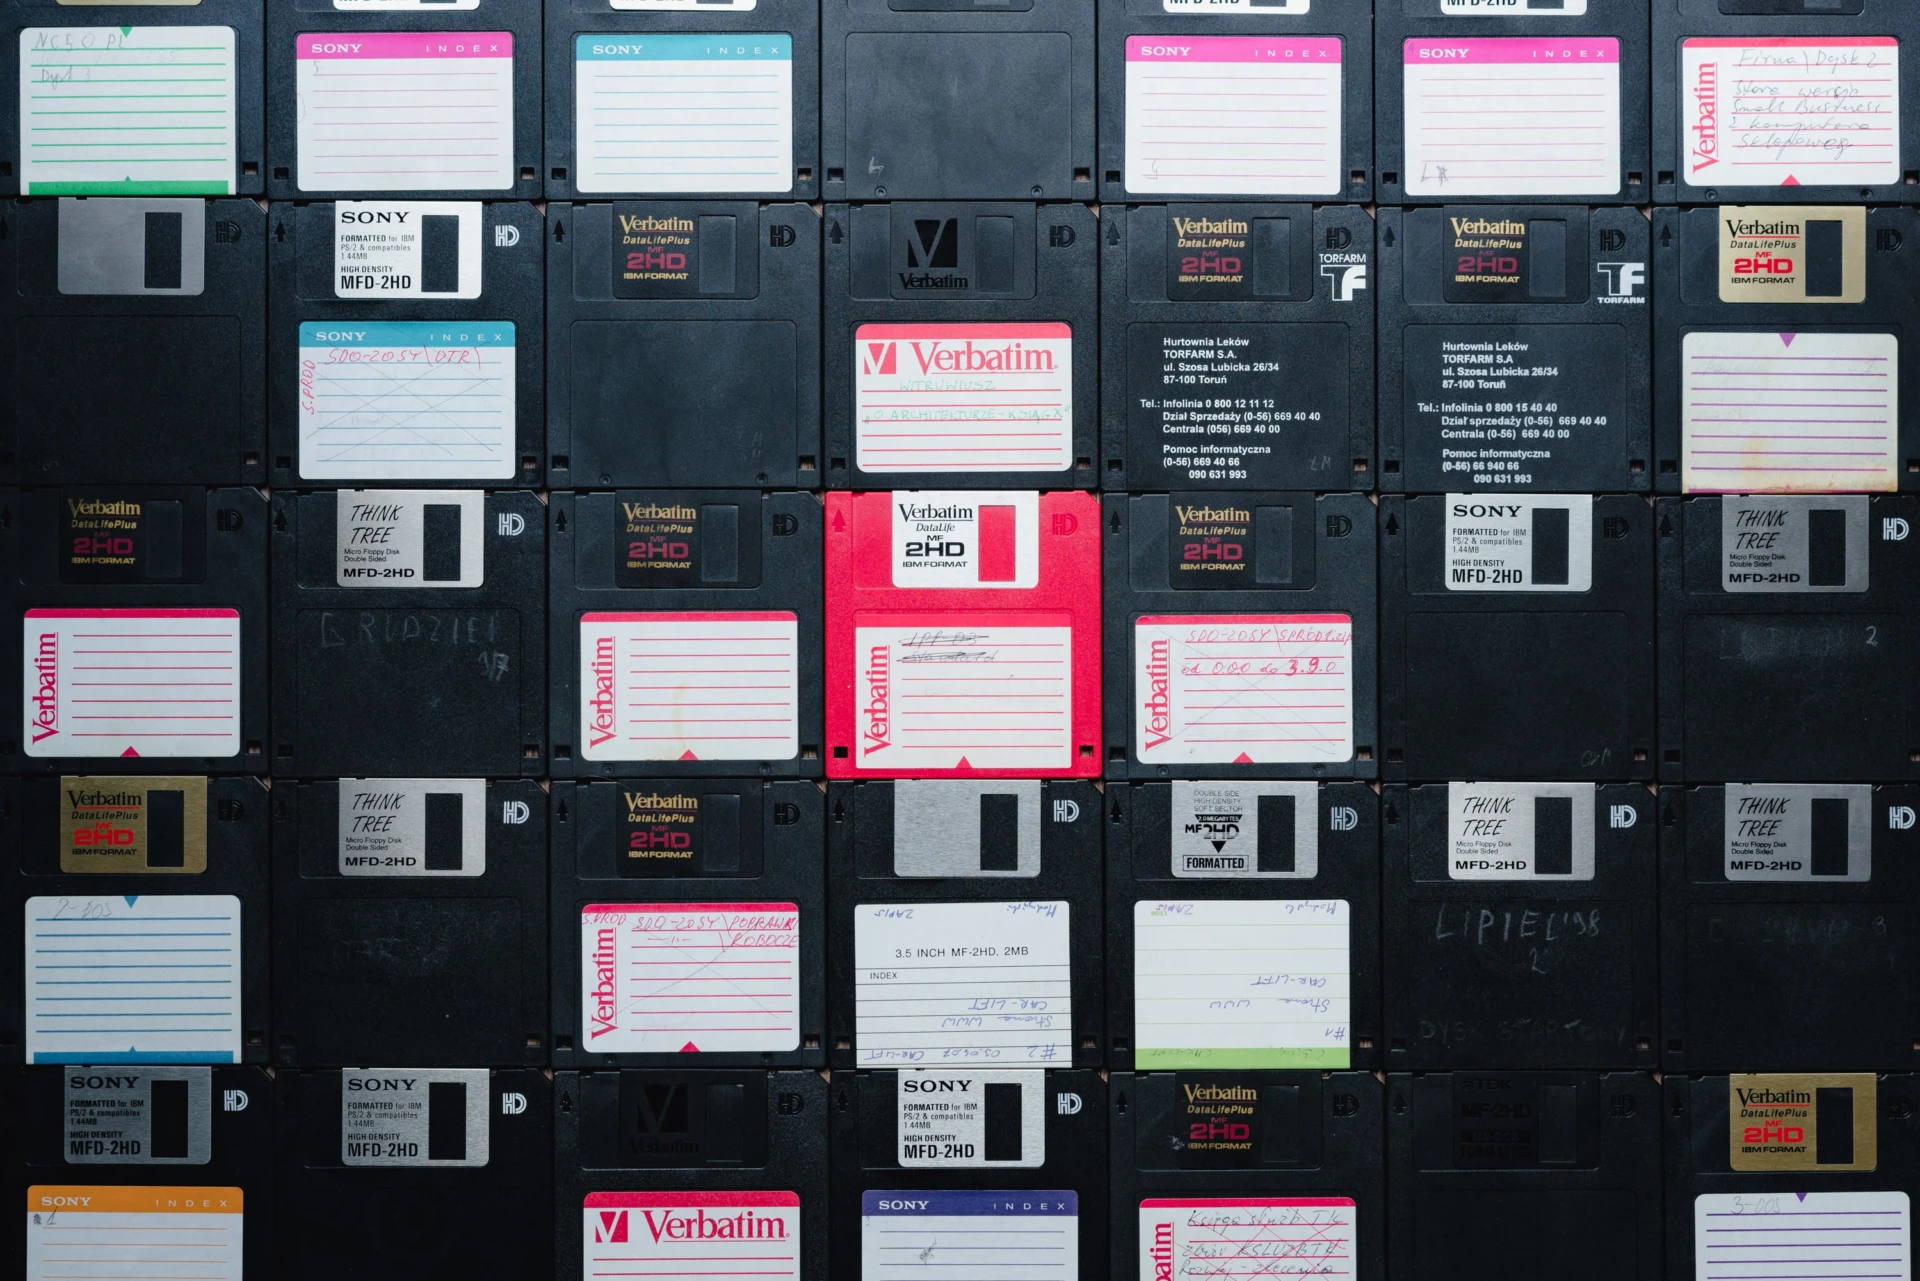 MFD-2HD
MFD-2HD
MFD-2HD
MFD-2HD
NC50 P1
Dysk 3
SONY INDEX
SONY INDEX
SONY INDEX
SONY INDEX
Verbatim
Firma \ Dysk 2
Stara wersja
Small Business
z komputera
Sklepowego
HD
SONY
FORMATTED for IBM
PS/2 & compatibles
1.44MB
HIGH DENSITY
MFD-2HD
HD
SONY INDEX
S.PROD
SDO-20SY\DTR\
Verbatim
DataLifePlus
MF
2HD
IBM FORMAT
HD
Verbatim
HD
Verbatim
WITRUWIUSZ
"O ARCHITEKTURZE-KSIĄG X"
Verbatim
DataLifePlus
MF
2HD
IBM FORMAT
HD
TORFARM
TF
Hurtownia Leków
TORFARM S.A.
ul. Szosa Lubicka 26/34
87-100 Toruń
Tel.: Infolinia 0 800 12 11 12
Dział Sprzedaży (0-56) 669 40 40
Centrala (056) 669 40 00
Pomoc informatyczna
(0-56) 669 40 66
090 631 993
Verbatim
DataLifePlus
MF
2HD
IBM FORMAT
HD
TF
TORFARM
Hurtownia Leków
TORFARM S.A
ul. Szosa Lubicka 26/34
87-100 Toruń
Tel.: Infolinia 0 800 15 40 40
Dział sprzedaży (0-56) 669 40 40
Centrala (0-56) 669 40 00
Pomoc informatyczna
(0-56) 66 940 66
090 631 993
Verbatim
DataLifePlus
MF
2HD
IBM FORMAT
HD
Verbatim
DataLifePlus
MF
2HD
IBM FORMAT
HD
Verbatim
THINK
TREE
Micro Floppy Disk
Double Sided
MFD-2HD
HD
GRUDZIEŃ
Verbatim
DataLifePlus
MF
2HD
IBM FORMAT
HD
Verbatim
Verbatim
DataLife
MF
2HD
IBM FORMAT
HD
Verbatim
Standard
Verbatim
DataLifePlus
MF
2HD
IBM FORMAT
HD
Verbatim
SDO-20SY\SPROD1.zip
od 0.00 do 3.9.0
SONY
FORMATTED for IBM
PS/2 & compatibles
1.44MB
HIGH DENSITY
MFD-2HD
HD
THINK
TREE
Micro Floppy Disk
Double Sided
MFD-2HD
HD
2
Verbatim
DataLifePlus
MF
2HD
IBM FORMAT
HD
THINK
TREE
Micro Floppy Disk
Double Sided
MFD-2HD
HD
Verbatim
DataLifePlus
MF
2HD
IBM FORMAT
HD
S.PROD
Verbatim
SDO-20SY\POPRAWKI
ROBOCZE
HD
ZAPIS
3.5 INCH MF-2HD, 2MB
INDEX
CAR-LIFT
Strona WWW
#2 03.04.02 CAR-LIFT
DOUBLE SIDE
HIGH DENSITY
SOFT SECTOR
2.0 MEGABYTES
MF2HD
FORMATTED
HD
INDEX
ZAPIS
CAR-LIFT
Strona WWW
#1
THINK
TREE
Micro Floppy Disk
Double Sided
MFD-2HD
HD
LIPIEC '98
2
THINK
TREE
Micro Floppy Disk
Double Sided
MFD-2HD
HD
3
SONY
FORMATTED for IBM
PS/2 & compatibles
1.44MB
HIGH DENSITY
MFD-2HD
HD
SONY INDEX
1
SONY
FORMATTED for IBM
PS/2 & compatibles
1.44MB
HIGH DENSITY
MFD-2HD
HD
Verbatim
HD
Verbatim
SONY
FORMATTED for IBM
PS/2 & compatibles
1.44MB
HIGH DENSITY
MFD-2HD
HD
SONY INDEX
Verbatim
DataLifePlus
MF
2HD
IBM FORMAT
HD
Księga służb TK
zbiór KSLUZBTK
Rozwój - zlecenia
TDK
MF-2HD
Verbatim
DataLifePlus
MF
2HD
IBM FORMAT
3-DOS